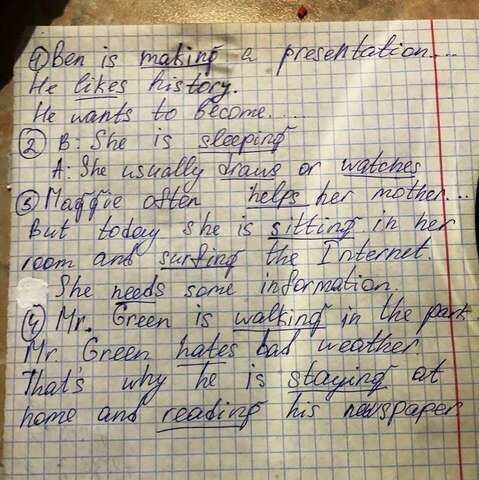 ① Ben is making a presentation....
He likes history.
He wants to become.....
② B: She is sleeping
A: She usually draws or watches
③ Maggie often helps her mother...
But today she is sitting in her
room and surfing the Internet.
She needs some information.
④ Mr. Green is walking in the park.
Mr. Green hates bad weather.
That's why he is staying at
home and reading his newspaper